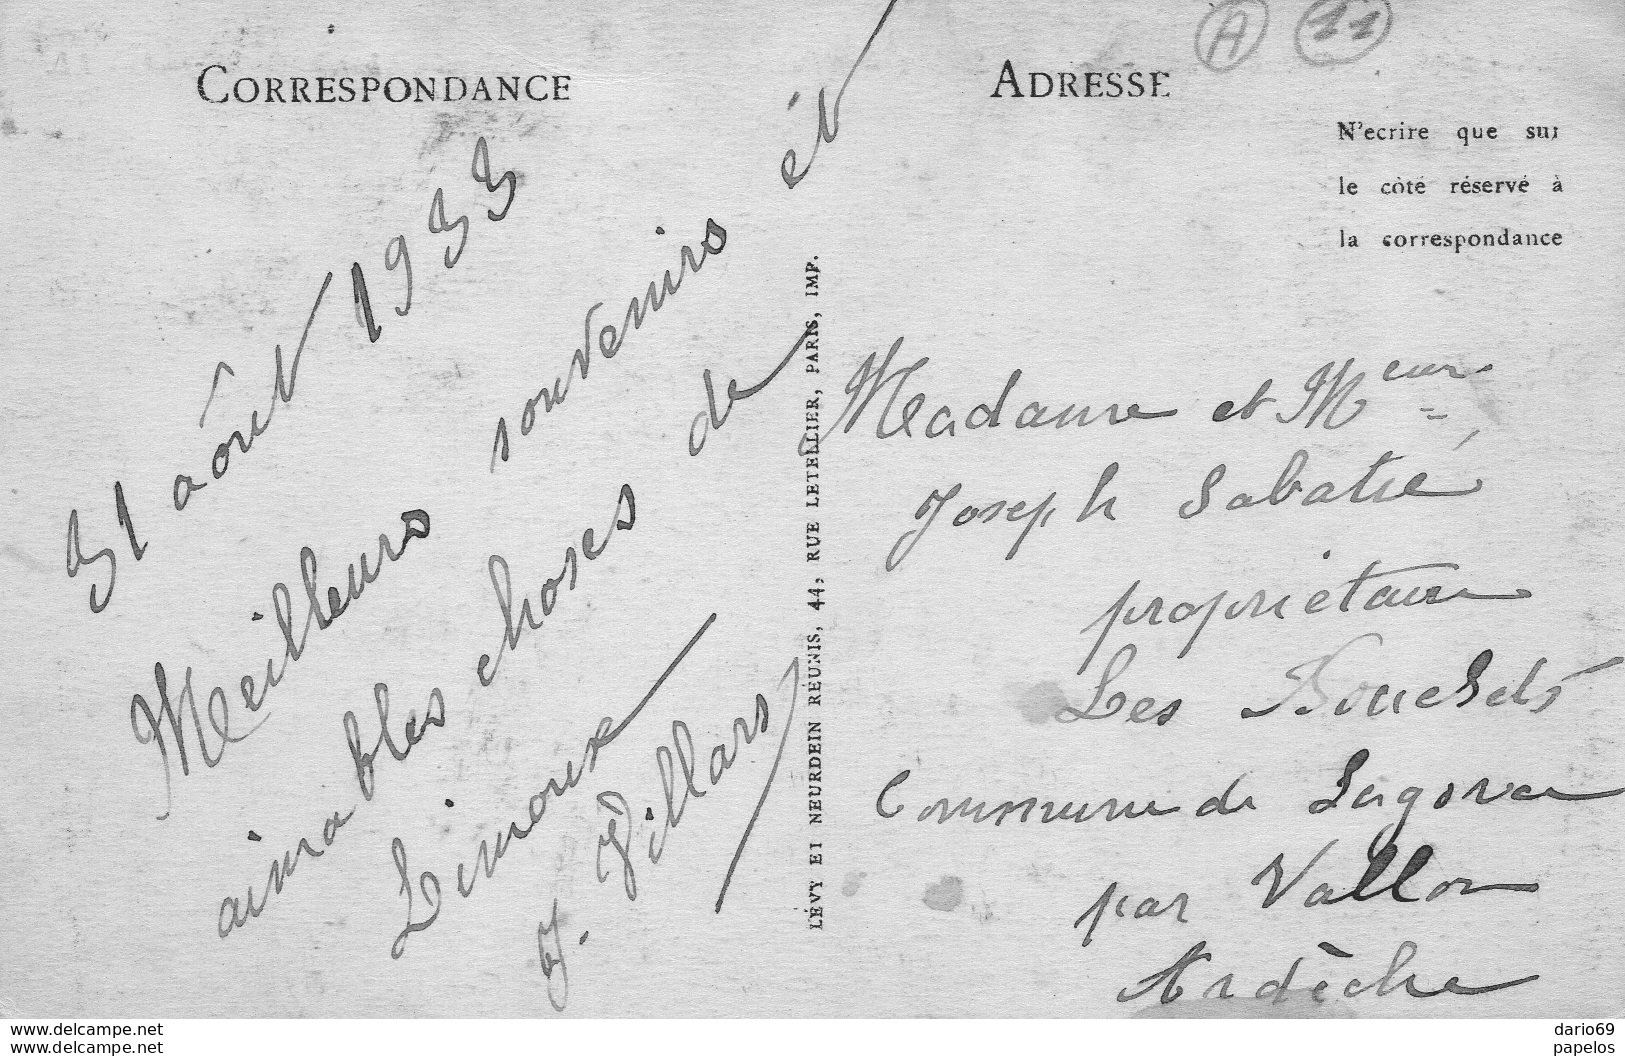 A 11
CORRESPONDANCE
ADRESSE
N'ecrire que sur
le côté réservé à
la correspondance
31 août 1933
Meilleurs souvenirs et
aimables choses de
Limoux
J. Villars
LÉVY ET NEURDEIN RÉUNIS, 44, RUE LETELLIER, PARIS, IMP.
Madame et Meur
Joseph Sabatié
propriétaire
Les
Commune de
par Vallon
Ardèche
www.delcampe.net
www.delcampe.net
dario69
papelos